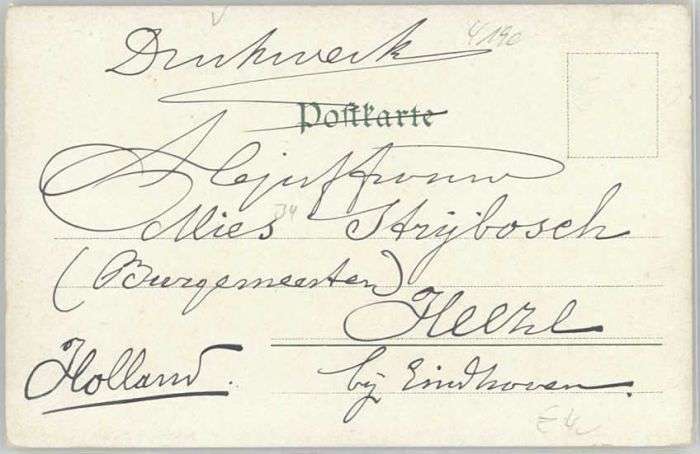 Drukwerk
4/190
Postkarte
Mejuffrouw
Mies Strijbosch
(Burgemeester)
Heeze
Holland.
bij Eindhoven.